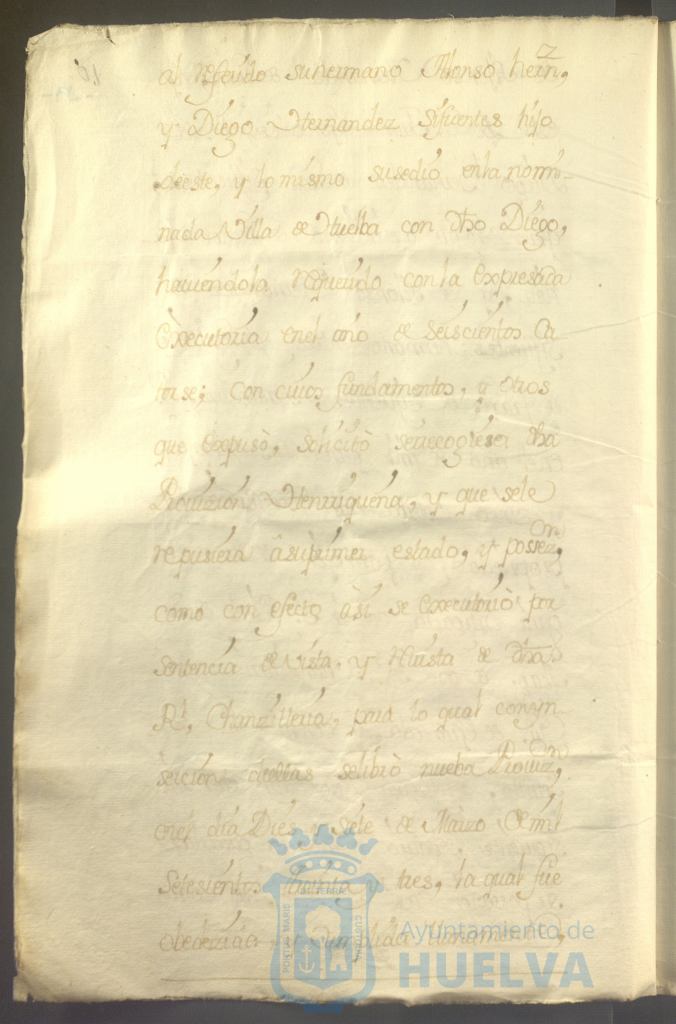 al referido suhermano Alonso hern,z
y Diego Hernandez Sifuentes hijo
deeste, y lo mismo susedió enla nomi-
nada Villa de Huelba con dho Diego,
haviéndola requerido conla expresada
Executoria enel año de seiscientos Ca
torse; con cuios fundamentos, y otros
que expusò, solicitò serecogiese, dha
Provizion Henrriqueña, y que sele
repusiera àsuprimer estado, y posses,on
como con efecto àsi se executoriò por
sentencia de vista, y revista de dha
Rl, Chanzilleria, para lo qual conyn-
sercion deellas selibrò nueba Proviz,on
enel dia Dies y siete de Marzo de mil
Setesientos treinta y tres, la qual fue
obedezida y cumplida llanamente,
Ayuntamiento de
HUELVA